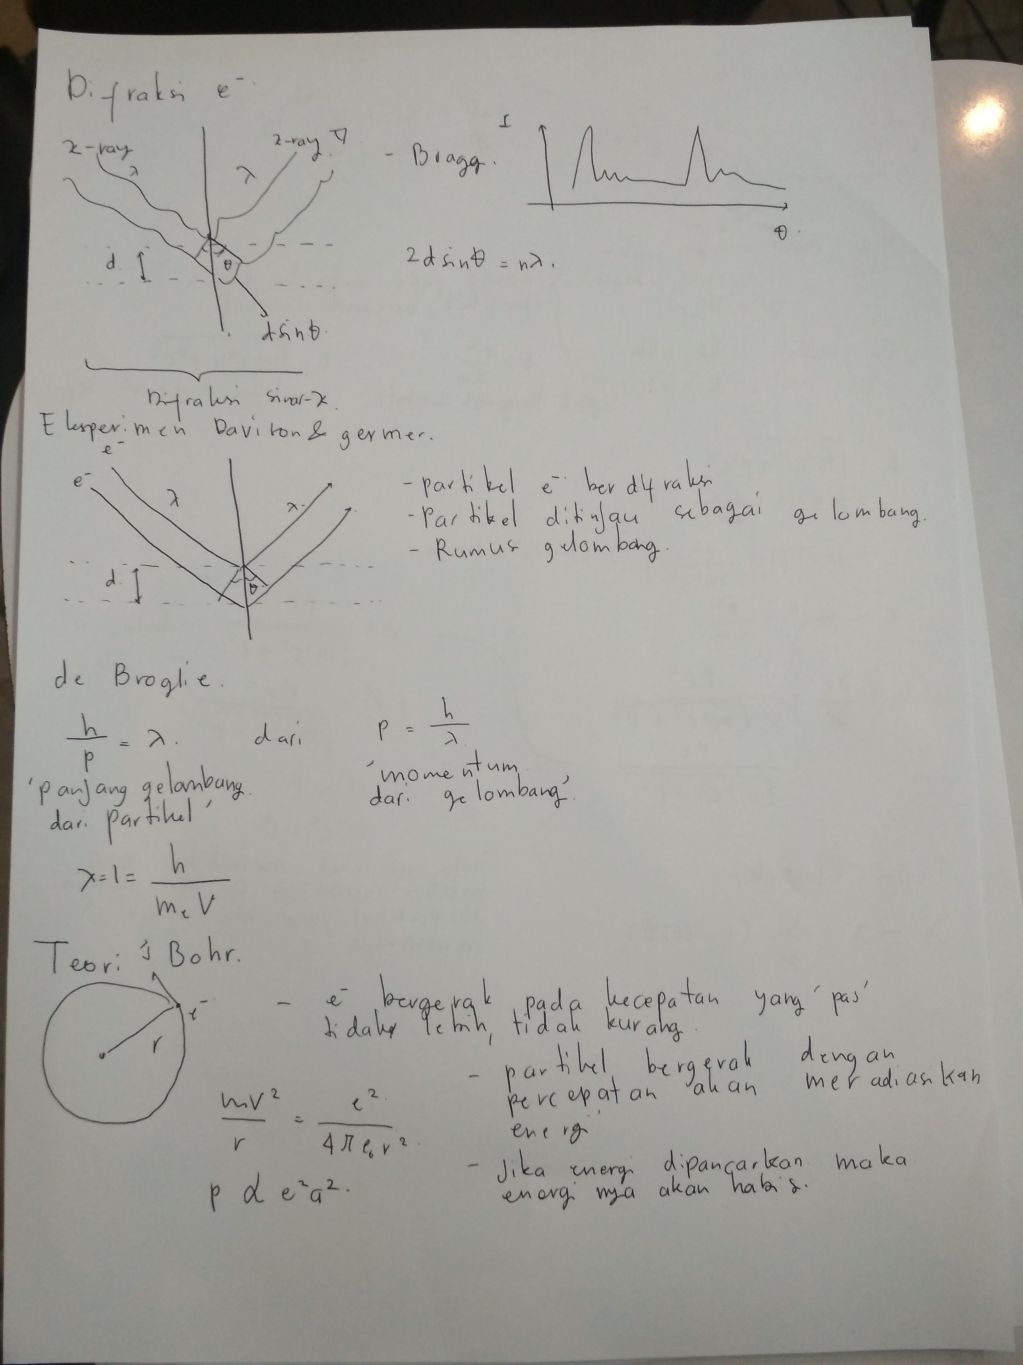 Difraksi e⁻
x-ray
x-ray
λ
λ
- Bragg.
I
θ
d
θ
2d sinθ = nλ.
d sinθ
Difraksi sinar-x.
Eksperimen Davison & germer.
e⁻
e⁻
λ
λ
- partikel e⁻ berdifraksi
- Partikel ditinjau sebagai gelombang.
- Rumus gelombang.
d
θ
de Broglie.
h/p = λ. dari p = h/λ
'panjang gelombang dari partikel'
'momentum dari gelombang'
λ=1= h/(mₑV)
Teori Bohr.
e⁻
r
- e⁻ bergerak pada kecepatan yang 'pas'
tidak lebih, tidak kurang.
- partikel bergerak dengan
percepatan akan meradiasikan
energi
mv²/r = e²/(4πε₀r²).
- Jika energi dipancarkan maka
energi nya akan habis.
p ∝ e²a².